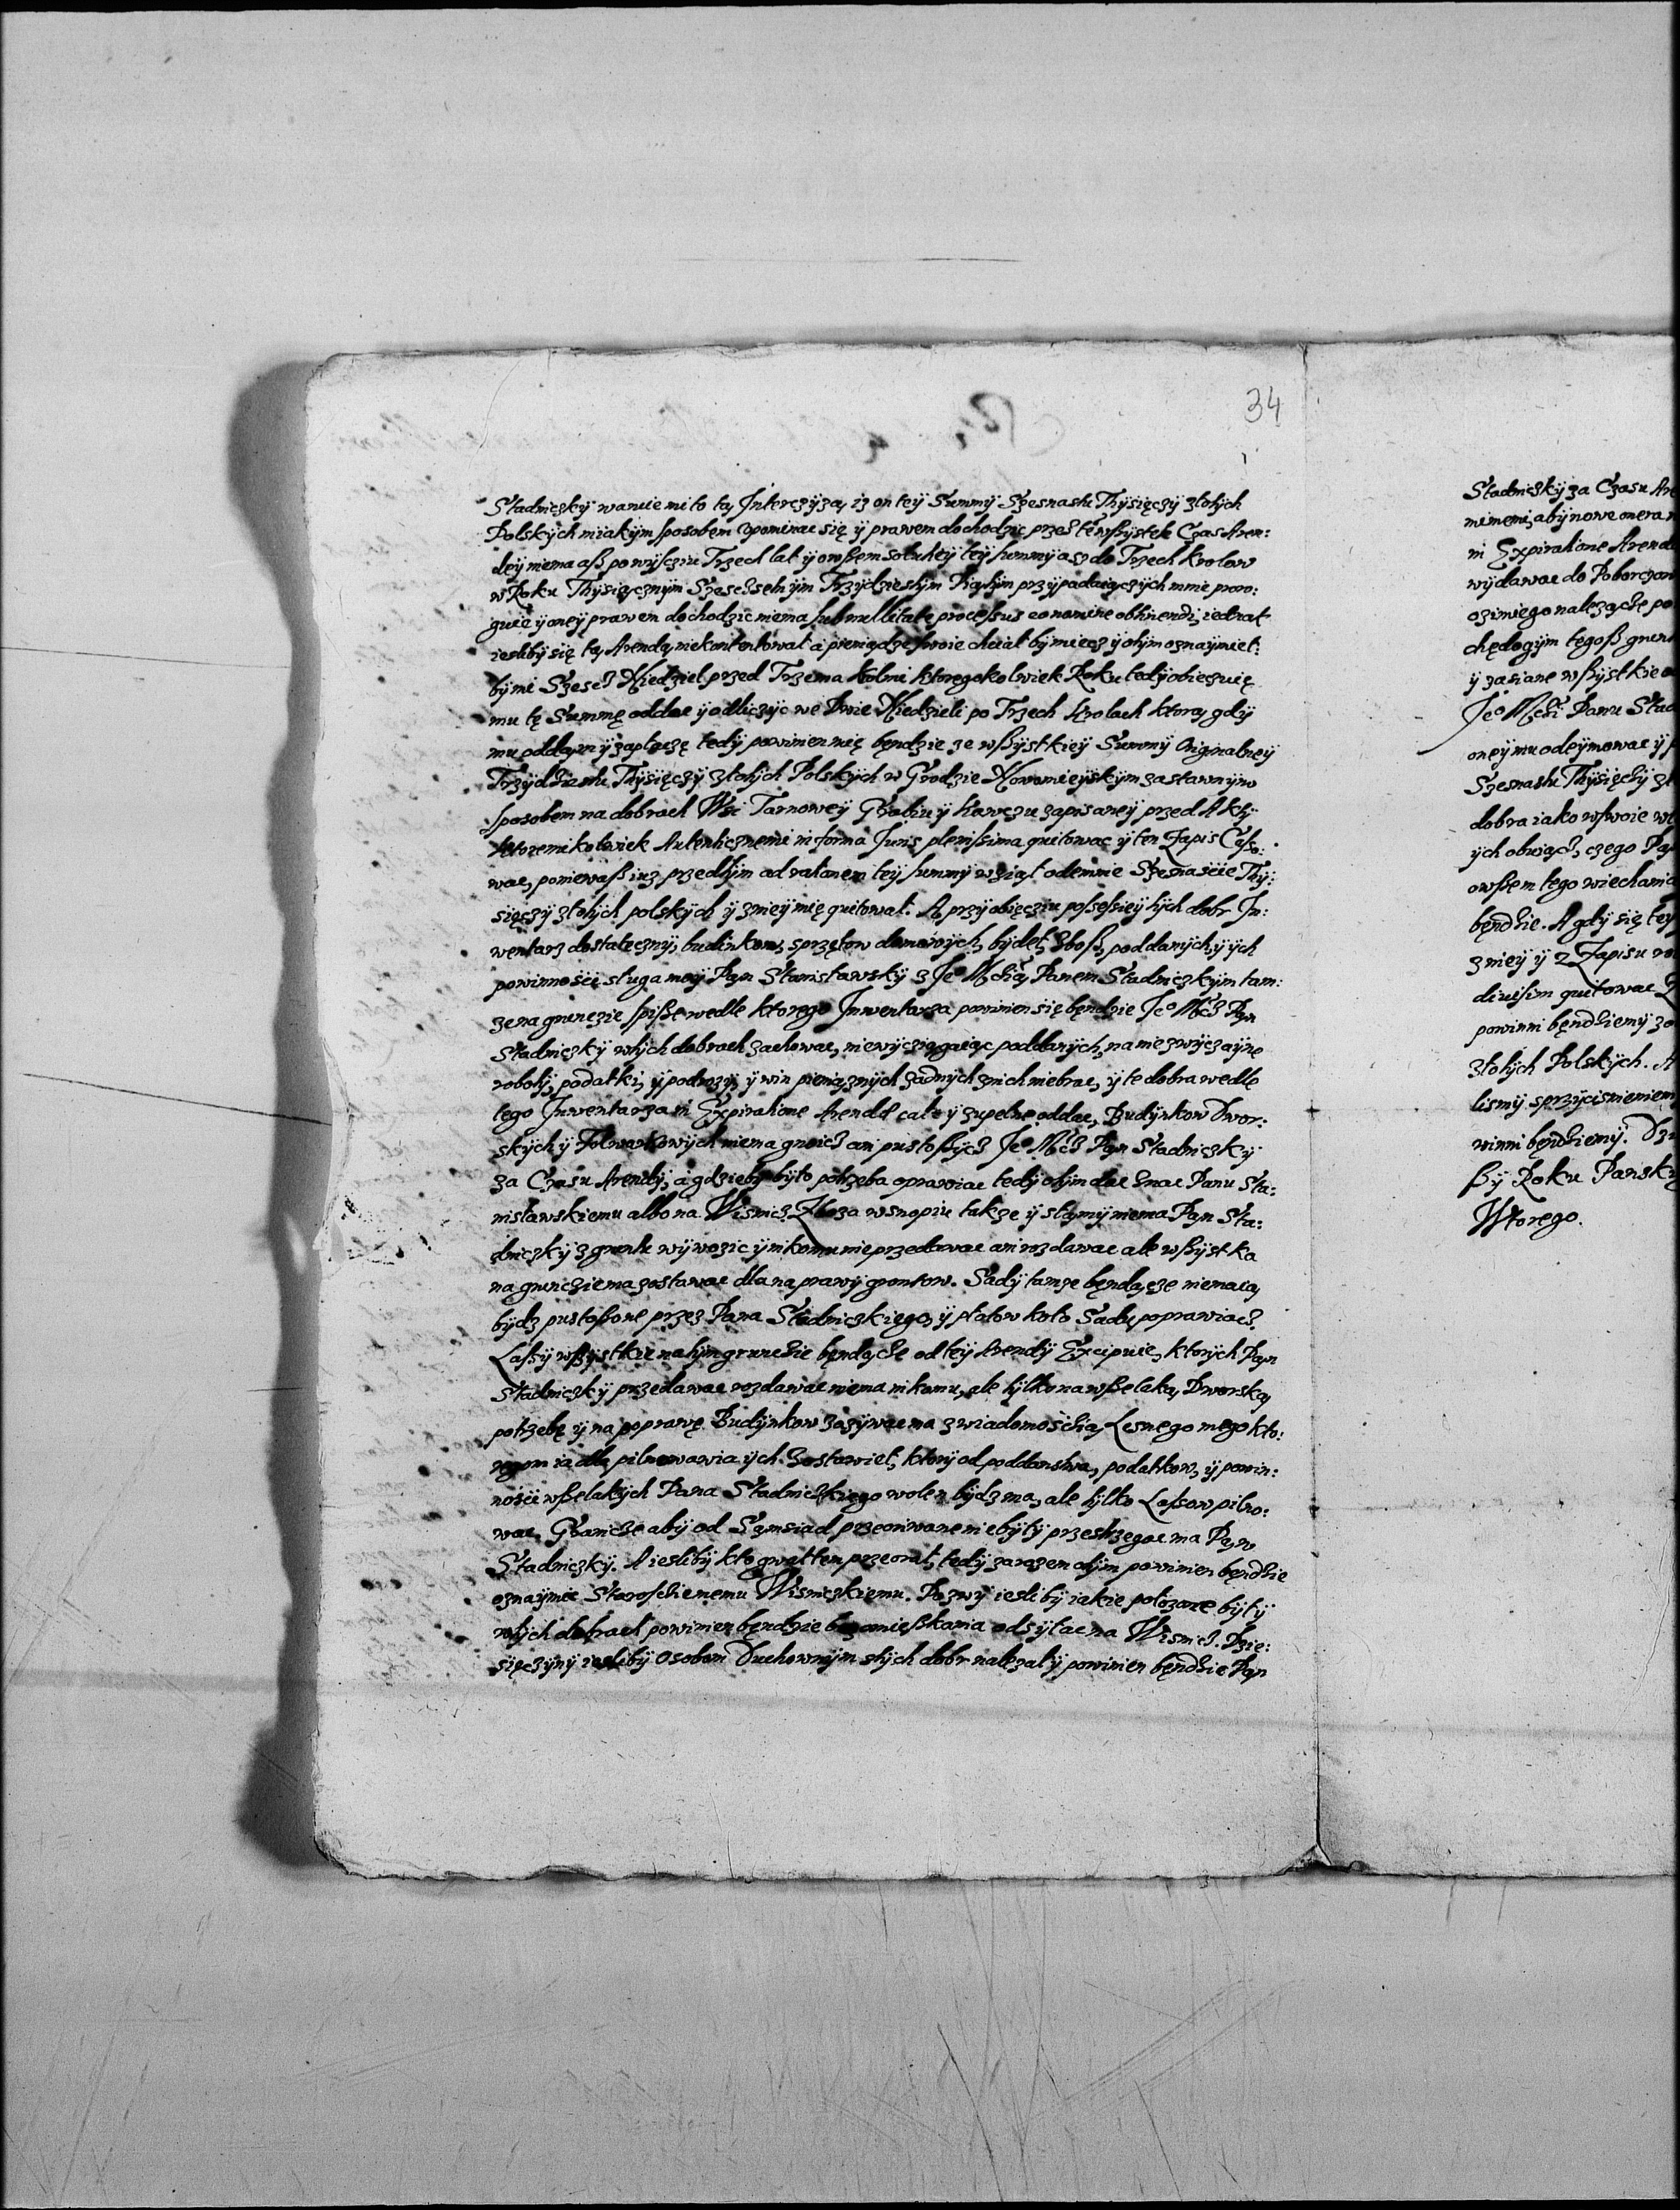 34
Stadniczkÿ waruie mi to tą Interczÿzą, iz on teÿ Summÿ Szesnastu Thÿsięczÿ złotÿch
Polskÿch niiakÿm sposobem upominac się ÿ prawem dochodzic przes te wßÿstek Czas Aren:
dÿ niema aß po wÿsczu Trzech lat ÿ owßem solutię teÿ summÿ asz do Trzech Krolow
w Roku Thÿsięcznÿm Szesczsetnÿm Trzÿdziestÿm Piątÿm przÿpadaiączÿch mnie proro:
guie ÿ oneÿ prawem dochodzic niema sub nullitate processus eo nomine obtinendi, iednak
iesliby się tą Arendą niekontentował a pieniądze swoie chciał bÿ miecz ÿ otÿm oznaÿmieł:
bÿ mi Szescz Niedziel przed Trzema Krolmi ktoregokolwiek Roku tedÿ obieczuię
mu tę Summę oddac ÿ odliczÿc we Dwie Niedzieli po Trzech Krolach ktorą gdÿ
mu oddam ÿ zapłaczę tedÿ powinien mię bendzie ze wßÿstkieÿ Summÿ Originalneÿ
Trzÿdziestu Thÿsięczÿ złotÿch Polskÿch w Grodzie Nowomieÿskÿm zastawnÿm
sposobem na dobrach Wsi Tarnoweÿ Grabiu ÿ Kawczu zapisaneÿ przed Aktÿ
ktoremikolwiek Autenticznemi in forma Juris plenissima quitowac ÿ ten Zapis Casso:
wac, poniewaß iuz przedtÿm ad rationem teÿ summÿ wziął odemnie Szesnascie Thÿ:
sięczÿ złotÿch polskÿch ÿ znieÿ mię quitował. A przÿ obięcziu possessieÿ tÿch dobr In:
wentarz dostatecznÿ, budinkow, sprzętow domowÿch, bÿdeł, zboß, poddanÿch, ÿ ÿch
powinnosci sługa moÿ Pan Stanisławskÿ z Je Mscią Panem Stadniczkÿm tam:
ze na grunczie spiße wedle ktorego Inwentarza powinien się bendzie Je Mscz Pan
Stadniczkÿ wtÿch dobrach zachowac, niewÿcziągaiąc poddanÿch, na niezwÿczaÿne
robotÿ, podatki, ÿ podrozÿ, ÿ win pieniąznÿch zadnÿch znich niebrac, ÿ te dobra wedle
tego Inwentarza in Expiratione Arendæ cało ÿ zupelne oddac, Budÿnkow Dwor:
skÿch ÿ Folwarkowÿch niema gnoicz ani pustoßÿcz Je Mscz Pan Stadniczkÿ
za Czasu Arendÿ, a gdziebÿ bÿło potrzeba oprawiac tedÿ otÿm dac znac Panu Sta:
nisławskiemu albo na Wisnicz. Zboza wsnopiu takze ÿ słomÿ niema Pan Sta:
dniczkÿ z gruntu wÿwozic ÿ nikomu nieprzedawac ani rozdawac ale wßÿstka
na grunczie ma zostawac dla naprawÿ grontow. Sadÿ tamze bendącze niemaią
bÿdz pustoßone przez Pana Stadniczkiego, ÿ płotow koło Sadu poprawiacz.
Lasÿ wßÿstkie natÿm grunczie bendącze od teÿ Arendÿ Excipuię, ktorÿch Pan
Stadniczkÿ przedawac rozdawac niema nikomu, ale tÿlko na wßelaką Dworską
potrzebę ÿ na poprawę Budÿnkow zazÿwac ma zwiadomoscią Lesnego mego kto:
regom ia dla pilnowania ÿch zostawieł, ktorÿ od poddanstwa, podatkow, ÿ powin:
nosci wßelakÿch Pana Stadniczkiego wolen bÿdz ma, ale tÿlko Lasow pilno:
wac. Granicze abÿ od Sąmsiad przeorÿwane niebÿłÿ przestrzegac ma Pan
Stadniczkÿ. A ieslibÿ kto gwałtem przeorał, tedÿ zarazem otÿm powinien bendzie
oznaÿmic Starosciemu memu Wisniczkiemu. Pozwÿ ieslibÿ iakie połozone bÿłÿ
wtÿch dobrach powinien bendzie bezomießkania odsÿłac na Wisnicz. Dzie:
sięczÿnÿ ieslibÿ Osobom Duchownÿm stÿch dobr nalezałÿ powinien bendzie Pan
Stadniczkÿ za Czasu Are
in Expiratione Arend
wÿdawac do Poborczow
Je Msci Panu Stad
oneÿ mu odeÿmowac ÿ
Szesnastu Thÿsięczÿ
dobra iako wswoie
bendzie. A gdÿ się teÿ
znieÿ ÿ z Zapisu
powinni bendziemÿ
złotÿch Polskÿch. A
lismÿ sprzÿcisnieniem
winni bendziemÿ.
ßÿ Roku Panski
Wtorego.